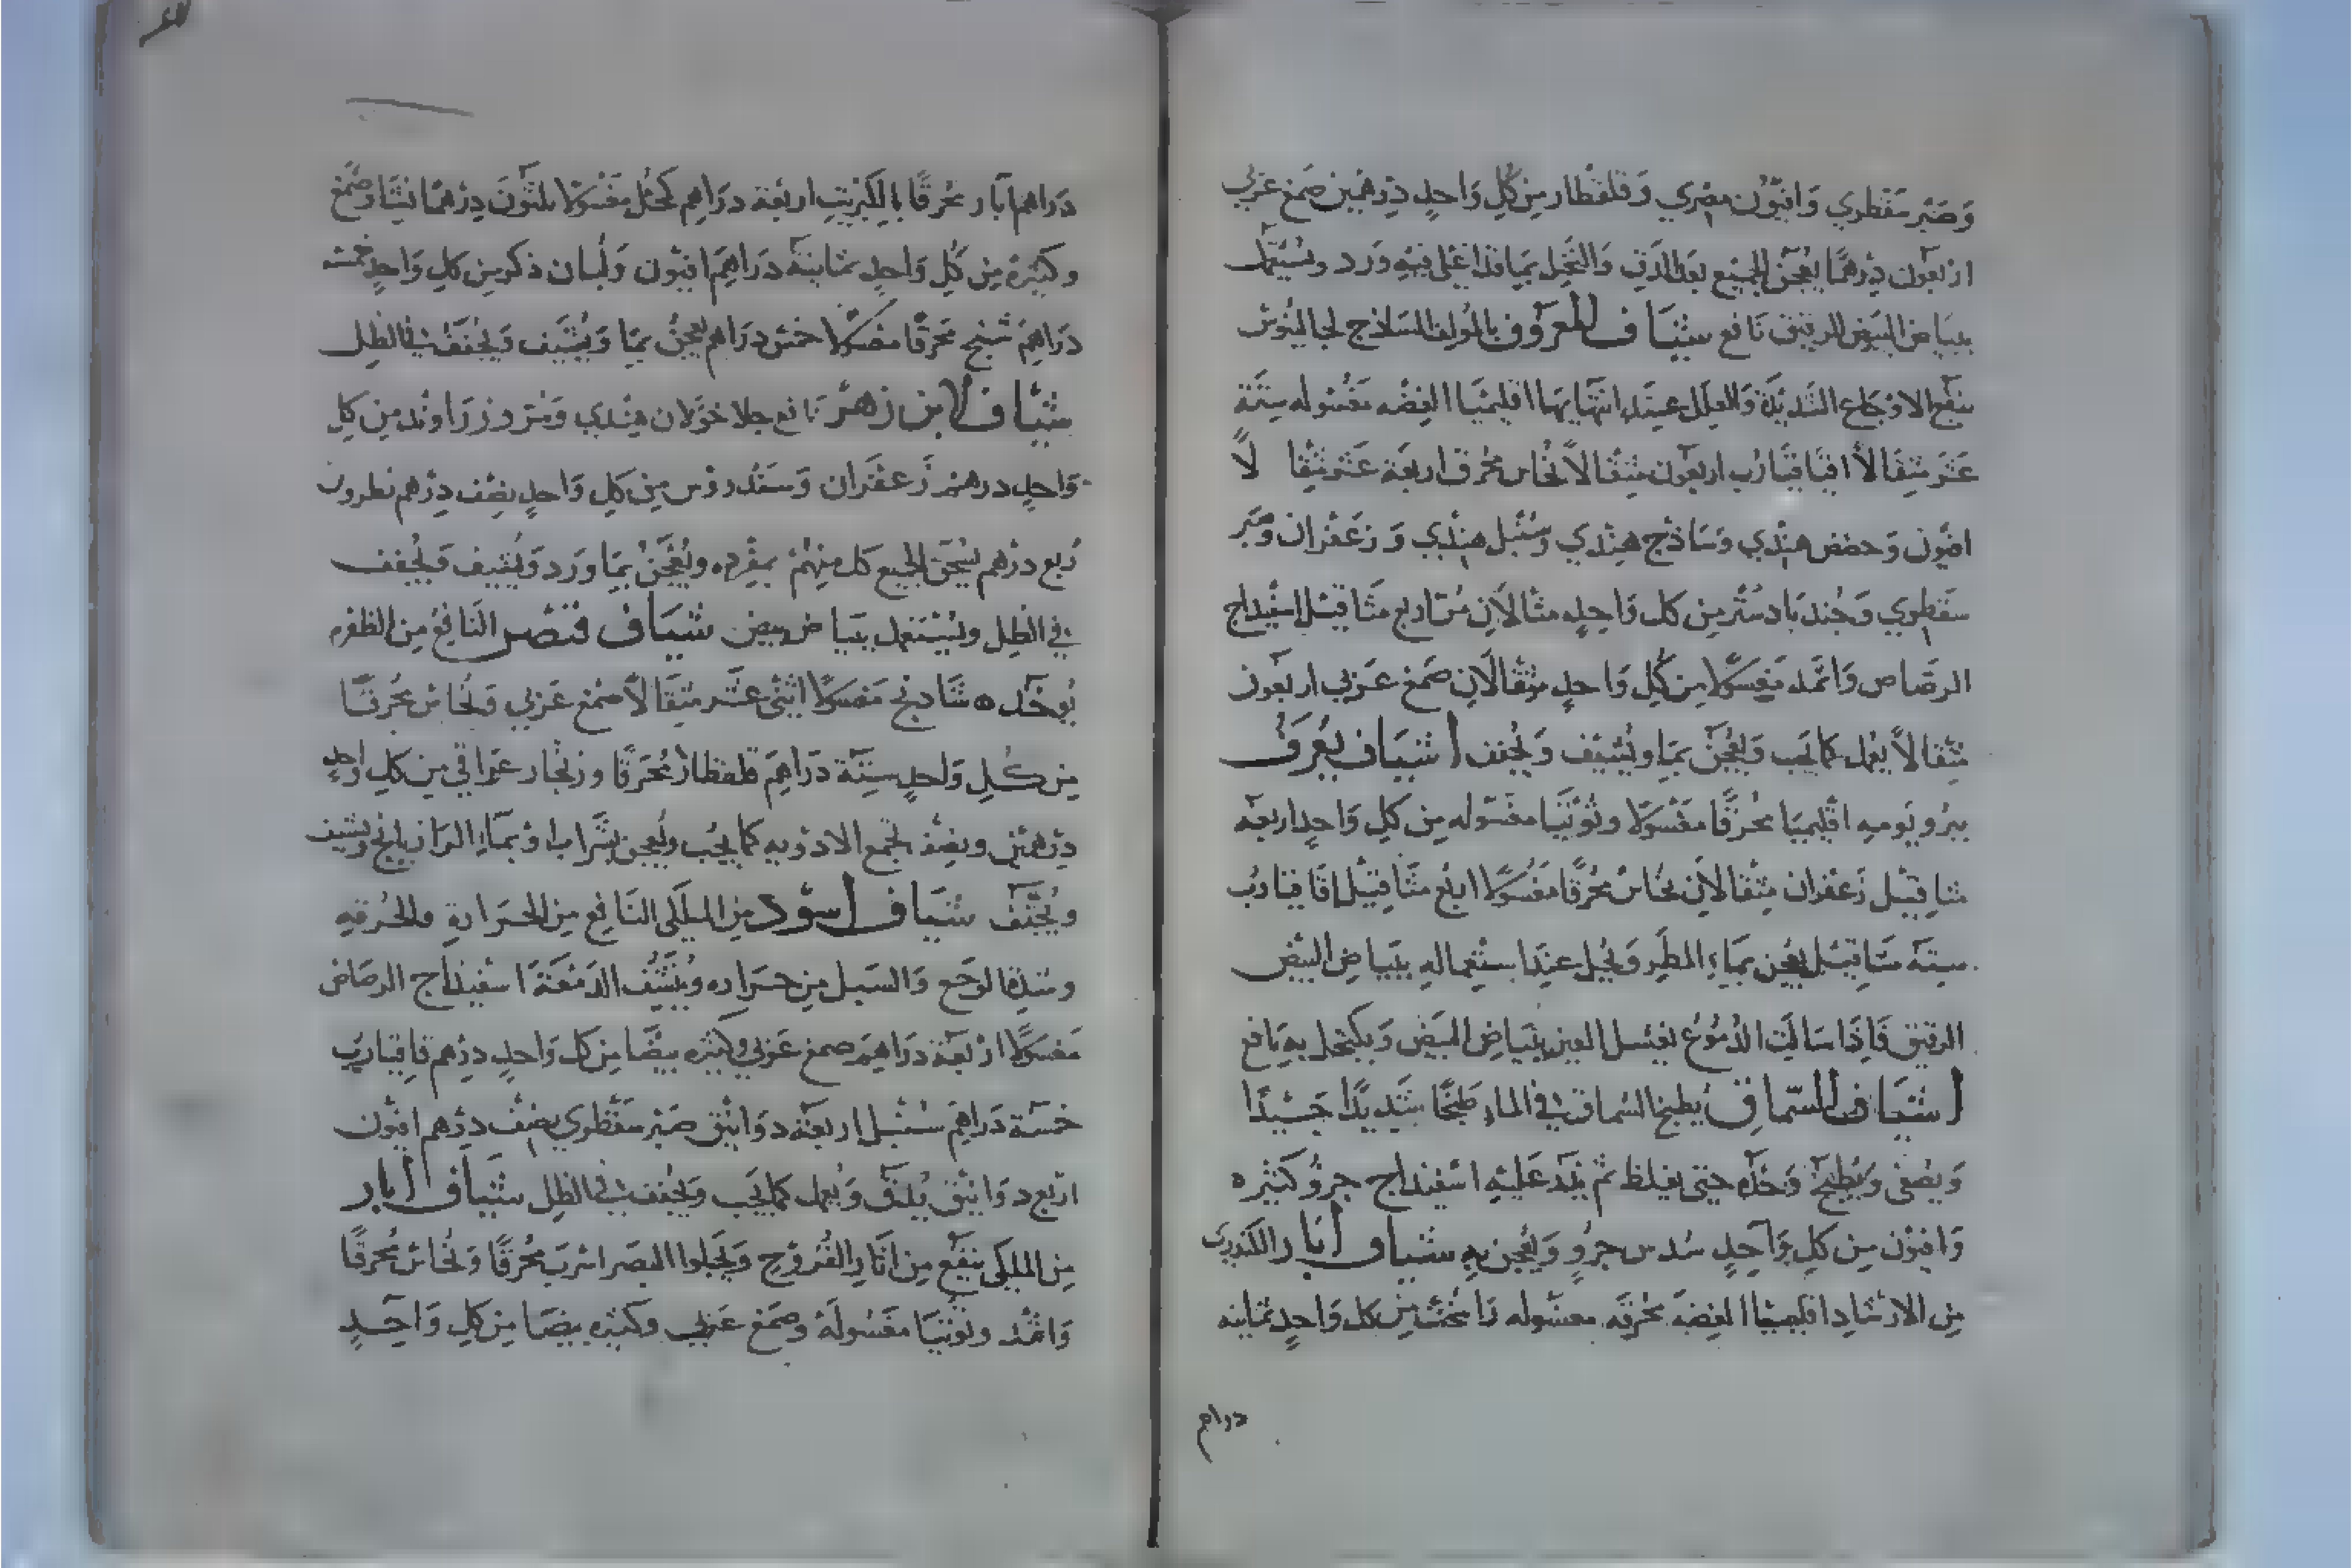 وَصَبر سَقطري وَافيُون مصري وَقلقطار من كلِ وَاحدٍ درهَمين صَمغ عَربي
اربَعون درهمًا يعجن الجميع بعد الدَق وَالنَخل بمَا قد اغلي فيه وَرد ويستعمل
ببيَاض البيض الرقيق نَافع شيَاف المعرُوف بالمولف الساذج لجالينوس
ينفع الاوجَاع الشديدَة وَالعلل عندَ انتهَايهَا اقليميَا الفضه مغسُوله ستة
عَشر مثقالاً اقاقيَا رُب اربعون مثقالاً نحاس محرق اربعَة عَشر مثقا لاً
افيون وَحضض هندي وَسَاذج هندي وَسُنبل هندي وَزعفران وصَبر
سقطري وَجُند بَادستر من كل وَاحدٍ مثقالان مُر اربع مثَاقيل اسفيداج
الرصَاص وَاثمد مَغسُولا من كلِ وَاحدٍ مثقالان صَمغ عَربي اربعون
مثقالاً يعمل كما يجب وَيعجن بمَا ويشيف وَيجفف اشيَاف يعرَف
ببرو يَوميه اقليميَا محرقًا مغسُولا وتُوتيَا مغسُوله من كلِ وَاحدٍ اربعَة
مثاقيل زَعفران مثقالان نحاس محرقًا مَغسُولا اربع مثاقيل اقاقيا رُب
ستة مثَاقيل يعجن بمَاءِ المطَرِ وَيحل عندَ استعمالهِ ببيَاض البيض
الرقيق فَاِذا سَالت الدُموُع يغسل العين ببيَاض البيَض وَيكتحل بهِ نافع
اشيَاف السّماق يطبخ السُماق في الماءِ طبخًا شَديدًا جَيدًا
وَيصفى وَيطبخ وَحدَه حتى يغلظ ثم يزَد عَليهِ اسفيداج جزوُ كَثيره
وَافيون من كلِ وَاحدٍ سُدس جزوٍ وَيعجن بهِ شيَاف ابَار الكندري
من الارشَاد اقليميَا الفضة محرقَه مغسُوله من كل وَاحدٍ ثمانيه
دراهم
دَراهم آبار محرقًا بالكبريت اربعَة دراهم كحل مَغسُولا ثلثون درهمًا نشَا وَصَمغ
وكثيرَة من كُلِ وَاحدٍ ثمانيَة دَراهمَ افيُون وَلُبان ذكر من كلِ وَاحدٍ خمسة
دَراهمَ شنج محرقًا مغسُولا خمس دراهم يعجن بمَا وَيُشيَف وَيجُفَفُ في الظِل
شيَاف لابن زهر نَافع جلا خولان هندي وَمر وَزرَاوند من كلِ
وَاحدٍ درهم زَعفرَان وَسَندروس من كلِ وَاحدٍ نصف درهم نطرون
ربع درهم يسحق الجميع كل منهُم بمفرده ويُعجَنُ بمَا وَرد وَيُشيف وَيجُفف
في الظِلِ ويُستعمل ببيَاض بيض شيَاف قيصر النافع من الظفره
يوخَذ ه شَادنج مَغسُولا اثنى عَشر مثقالاً صمغ عَربي وَنحاس محرقًا
من كُلِ وَاحدٍ ستة دَراهمَ قلقطار محرَقًا وزنجار عراقي من كلِ وَاحدٍ
درهمين ونصِف تجمع الادويه كما يجب ويُعجن بشَرابٍ اوْ بمَاءِ الرَازيانج ويشيف
ويُجَفّف شيَاف اسوَد من الملكى النَافع من الحَرَارة والحُرقهِ
وشدة الوجَع وَالسَبل من حَرَاره ويُنشف الدَمعَة اسفيداج الرصَاص
مغسُولا اربَعة دَراهمَ صمغ عَربي وكثيره بيضَا من كل وَاحدٍ درهم قاقيا رُب
خمسَة دَراهمَ سُنبل اربعَة دوَانيق صَبر سَقطوري نصف درهم افيُون
اربع دوَانيق يُدق وَيعمل كما يجب وَيجفف في الظل شيَاف ابار
من الملكى ينفع من اثار القُروُح وَيجلوا البصَر اسرَب محرقًا وَنحاس محرقًا
وَاثمد وتوتيَا مغسُولَة وصَمغ عَربي وكثيره بيضَا من كلِ وَاحدٍ